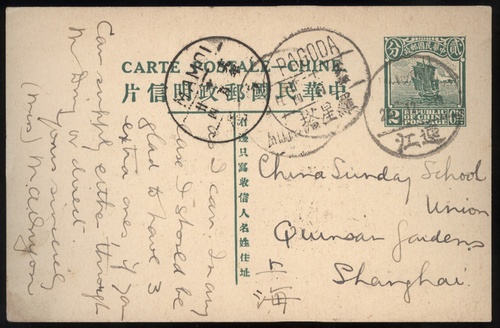 CARTE POSTALE—CHINE.
中華民國郵政明信片
分 中華民國郵政 貳
2 REPUBLIC OF CHINA POSTAGE Cts.
PAGODA
羅星塔
連江
右邊只寫收信人名姓住址
China Sunday School
Union
Quinsan Gardens
Shanghai.
上海
I can. In any
case I should be
glad to have 3
extra ones, if you
can supply either through
or direct.
Yours sincerely
(Miss)